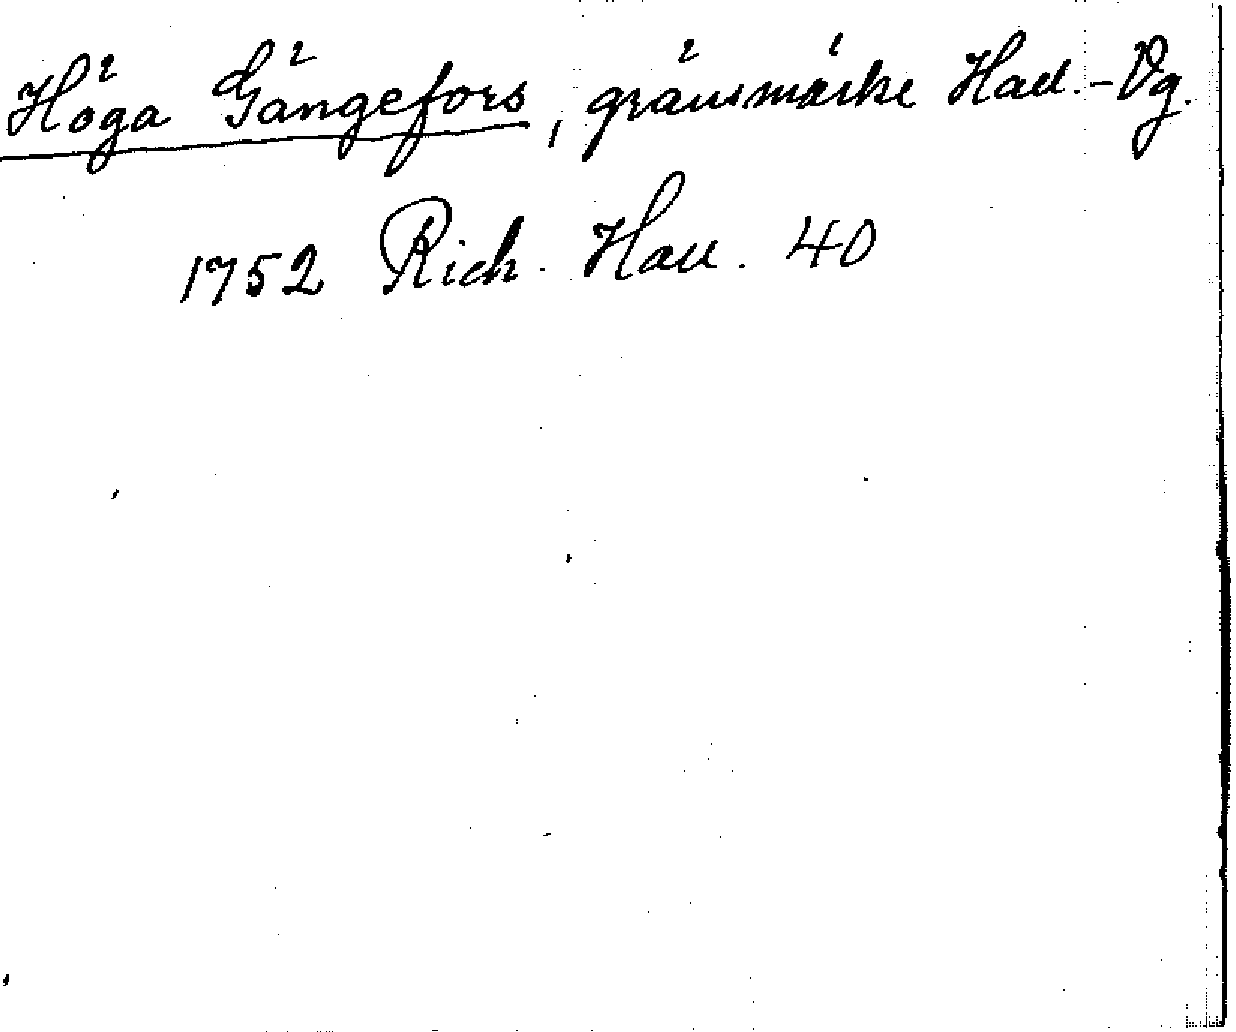 Höga Gängefors, gränsmärke Hall.-Vg.
1752 Rich. Hall. 40